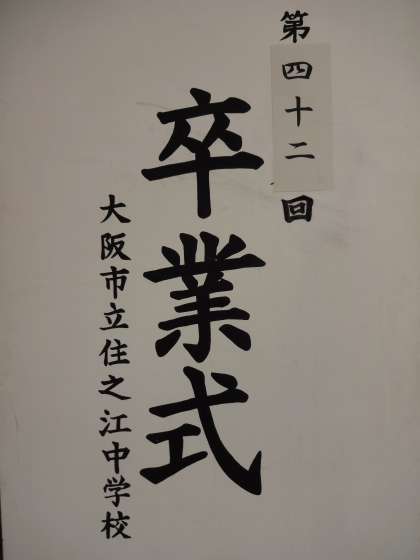 第四十二回
卒業式
大阪市立住之江中学校